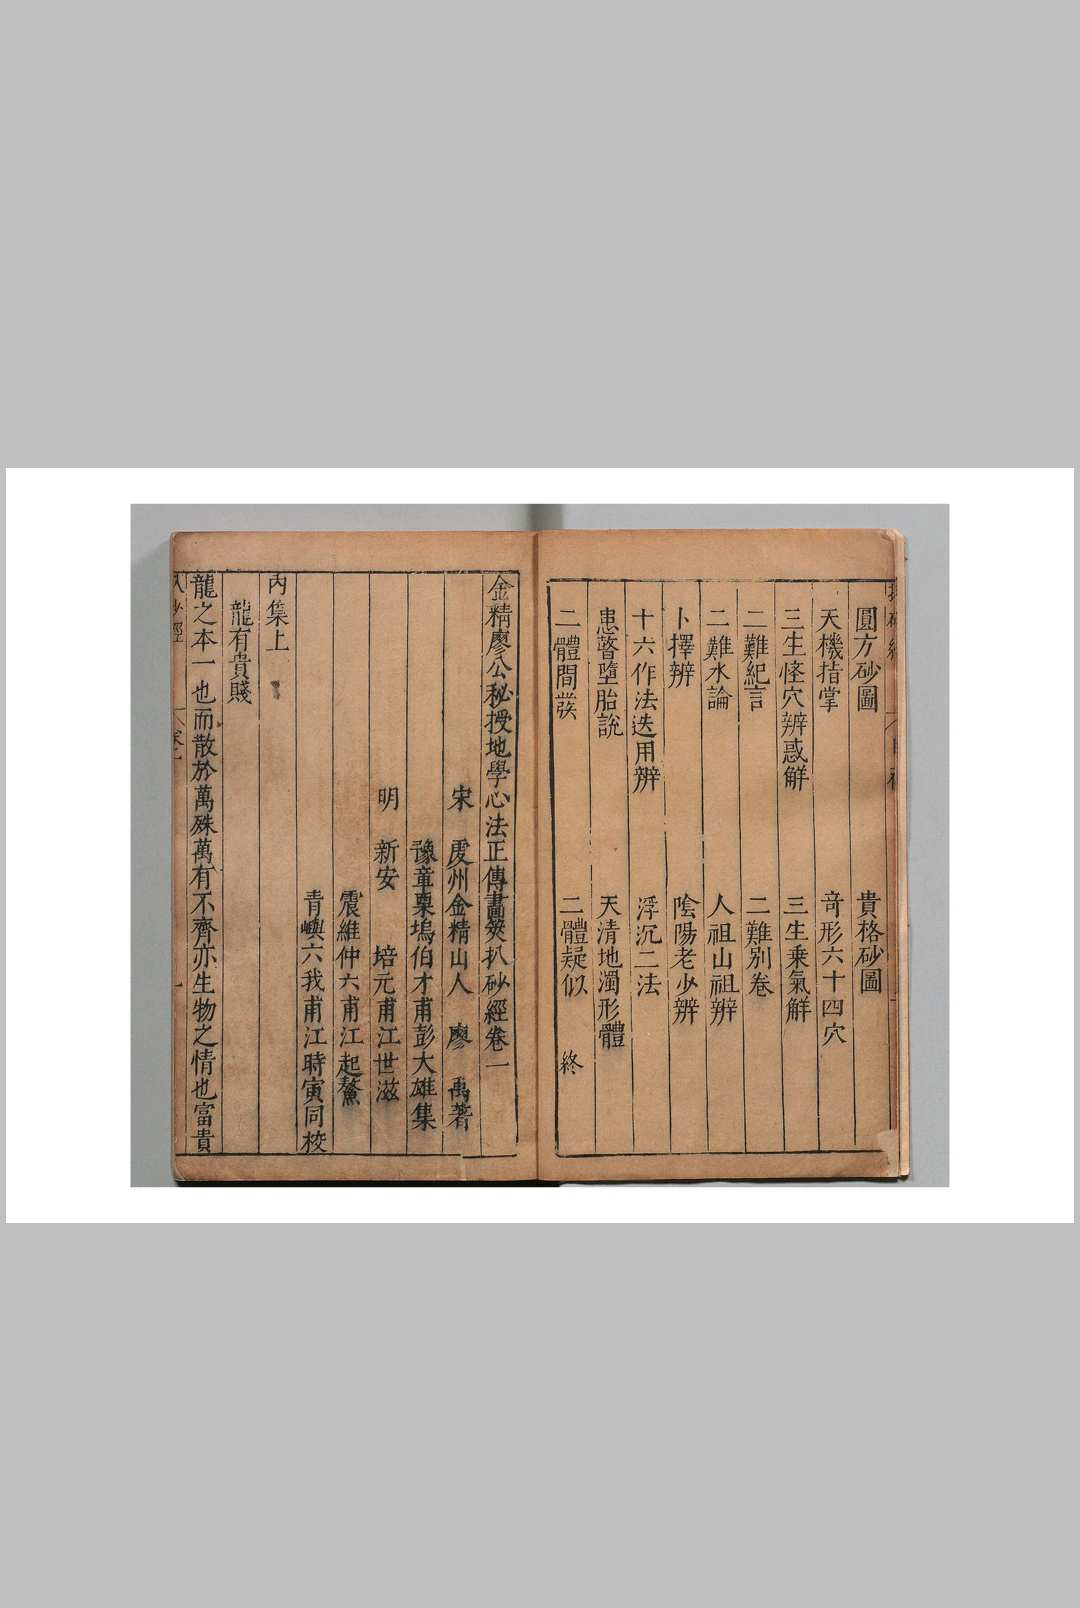 圓方砂圖　貴格砂圖
天機指掌　竒形六十四穴
三生怪穴辨惑觧　三生乗氣觧
二難紀言　二難別卷
二難水論　人祖山祖辨
卜擇辨　陰陽老少辨
十六作法迭用辨　浮沉二法
患瞽墮胎說　天清地濁形體
二體間發　二體疑似　終
金精廖公秘授地學心法正傳畫筴扒砂經卷一
宋　虔州金精山人　廖　禹著
豫章栗塢伯才甫彭大雄集
明　新安　培元甫江世滋
震維仲六甫江起鰲
青嶼六我甫江時寅同校
丙集上
龍有貴賤
龍之本一也而散於萬殊萬有不齊亦生物之情也富貴